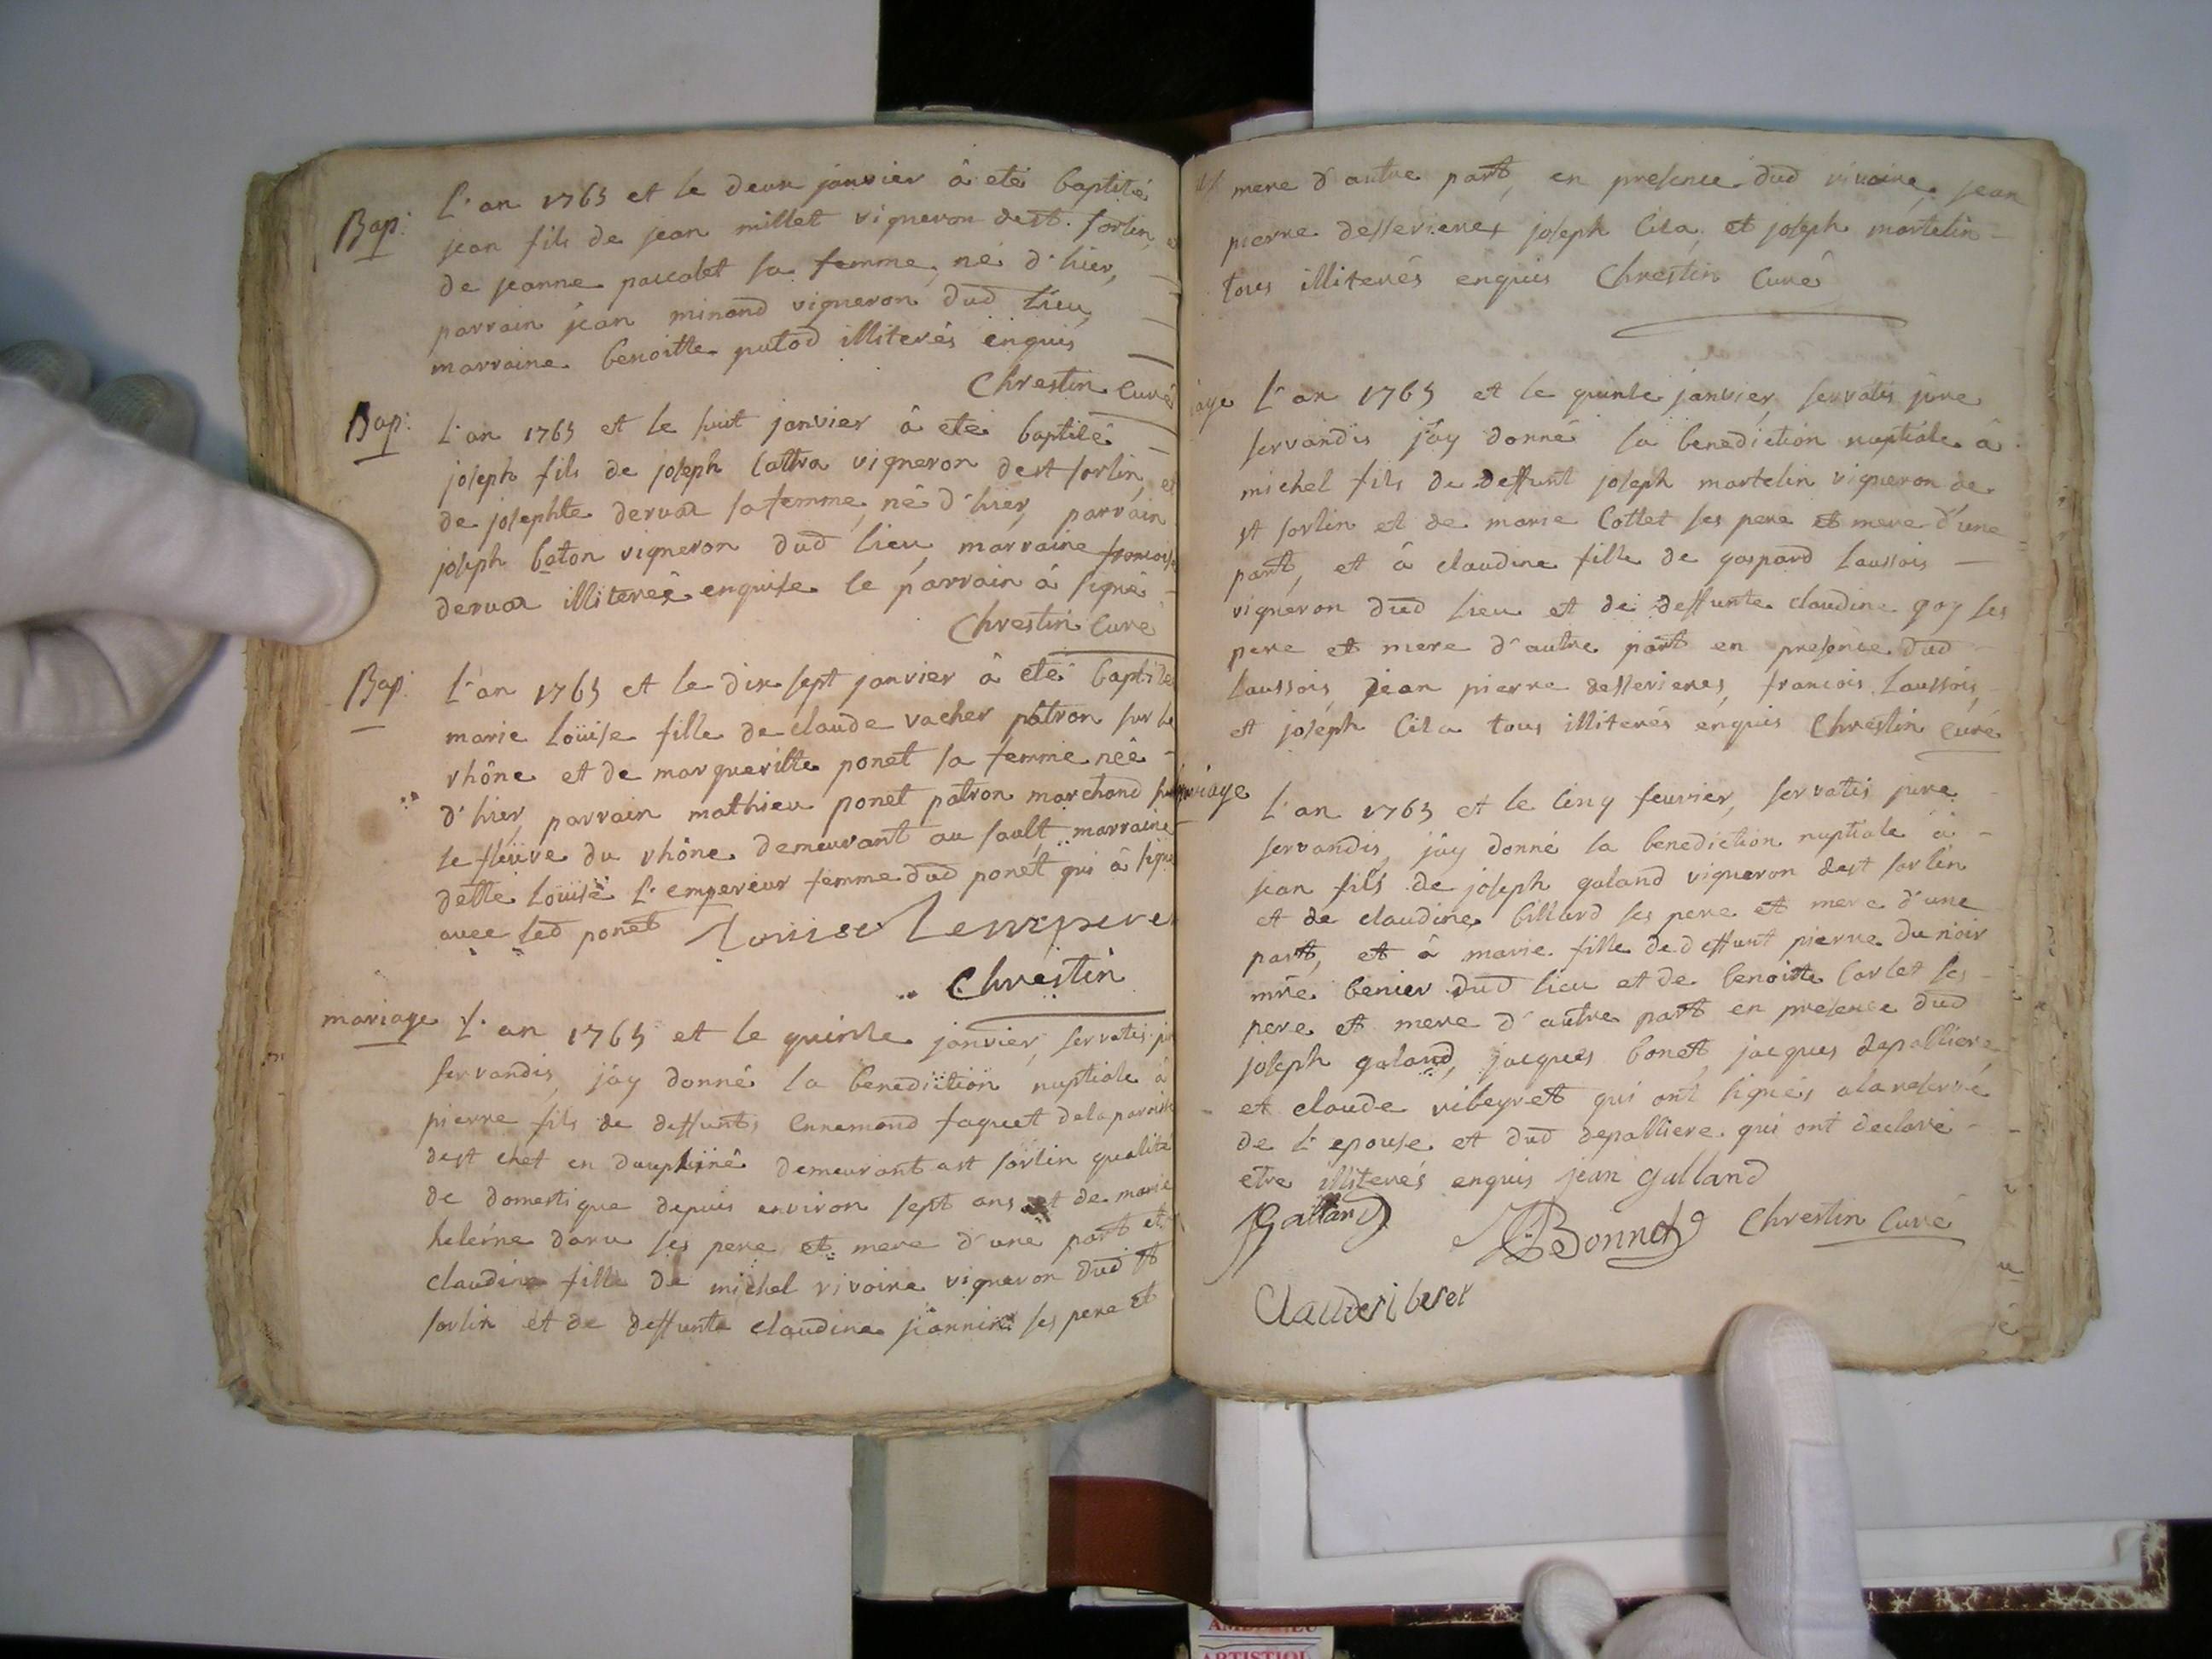 Bap: L'an 1765 et le deux janvier â eté baptisé
jean fils de jean millet vigneron de st. sorlin, et
de jeanne pascalet sa femme, né d'hier,
parrain jean minand vigneron dud lieu,
marraine benoitte putod illiterés enquis
Chrestin Curé
Bap: L'an 1765 et le huit janvier â eté baptisé
joseph fils de joseph Cattra vigneron de st sorlin, et
de josephte dervaz sa femme, né d'hier, parrain
joseph baton vigneron dud lieu, marraine francoise
dervaz illiterée enquise le parrain â signé
Chrestin Curé
Bap: L'an 1765 et le dix sept janvier â eté baptisée
marie Loüise fille de claude vacher patron sur le
rhône et de margueritte ponet sa femme née
d'hier, parrain mathieu ponet patron marchand sur
le fleüve du rhône demeurant au sault, marraine
delle Loüise L'empereur femme dud ponet qui â signé
avec led ponet Louise Lempere
Chrestin
mariage L'an 1765 et le quinze janvier, servatis ju
servandis, jây donné la benediction nuptiale â
pierre fils de deffunts Ennemond faquet de la paroisse
de st chef en dauphiné demeurant a st sorlin qualité
de domestique depuis environ sept ans et de marie
heleine daru ses pere et mere d'une part et
claudine fille de michel rivoire vigneron dud st
sorlin et de deffunte claudine jeannin ses pere et
mere d'autre part, en presence dud rivoire, jean
pierre desserieres joseph Cila, et joseph martelin
tous illiterés enquis Chrestin Curé
iage L'an 1765 et le quinze janvier, servatis jure
servandis jây donné la benediction nuptiale â
michel fils de deffunt joseph martelin vigneron de
st sorlin et de marie Cottet ses pere et mere d'une
part, et â claudine fille de gaspard Laussois
vigneron dud lieu et de deffunte claudine goy ses
pere et mere d'autre part en presence dud
Laussois, jean pierre desserieres, francois Laussois,
et joseph Cila tous illiterés enquis Chrestin Curé
mariage L'an 1765 et le cinq feuvrier, servatis jure
servandis, jây donné la benediction nuptiale â
jean fils de joseph galand vigneron de st sorlin
et de claudine billard ses pere et mere d'une
part, et â marie fille de deffunt pierre du noir
mtre benier dud lieu et de benoitte Carlet ses
pere et mere d'autre part en presence dud
joseph galand, jacques bonet, jacques depalliere
et claude ribeyret qui ont signés a la reserve
de l'epouse et dud depalliere qui ont declaré
etre illiterés enquis jean galland
J Galland JBonnet Chrestin Curé
Clauderiberet